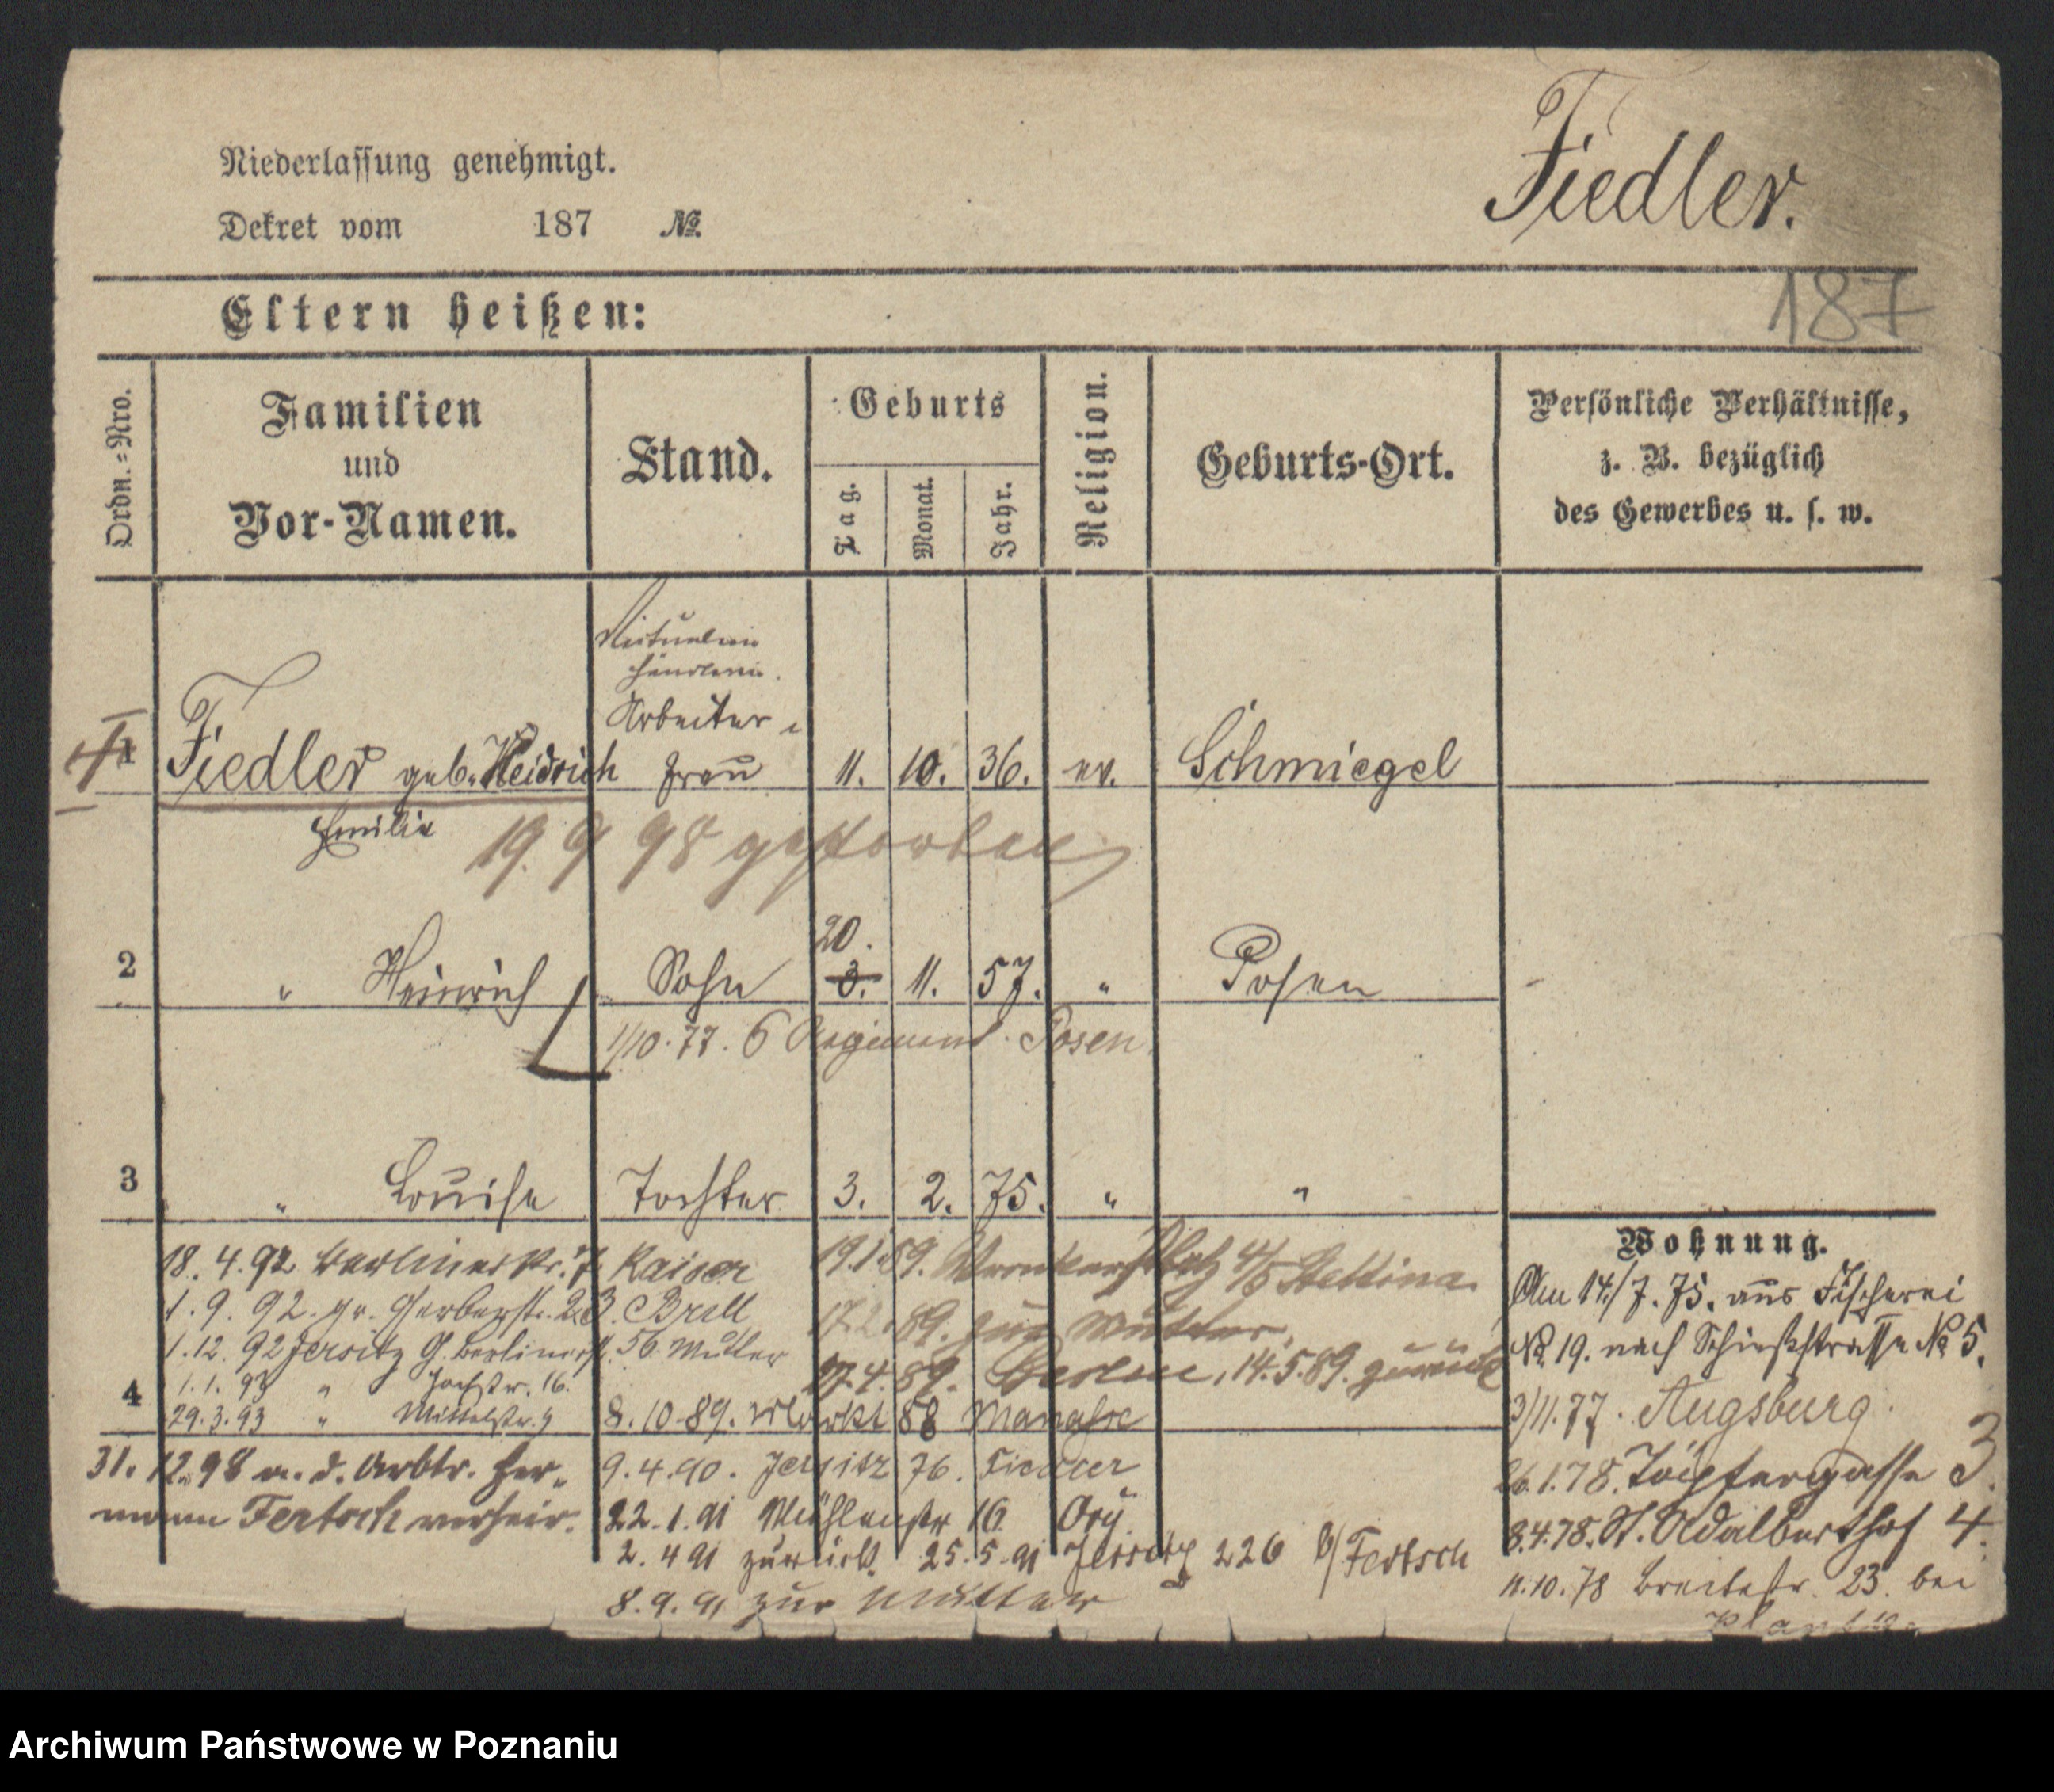 Niederlassung genehmigt.
Dekret vom 187 №.
Fiedler.
187
Eltern heißen:
Ordn.-Nro.
Familien
und
Vor-Namen.
Stand.
Geburts
Tag.
Monat.
Jahr.
Religion.
Geburts-Ort.
Persönliche Verhältnisse,
z. B. bezüglich
des Gewerbes u. s. w.
händlerin.
Arbeiter
1 Fiedler geb. Heidrich frau 11. 10. 36. ev. Schmiegel
Emilie
19. 9 98 gestorben
20.
2 " Heinrich Sohn 3. 11. 57. " Posen
1/10. 77. 6 Regiment Posen
3 " Louise Tochter 3. 2. 75. " "
Wohnung.
18. 4. 92 Berlinerstr. 7 Kaiser
1. 9. 92. gr. Gerberstr. 23. Brell
1. 12. 92 Jersitz G. Berlinerstr. 56. Müller
1. 1. 93 "
4
29. 3. 93 " Mittelstr. 9
31. 12. 98 a. d. Arbtr. Her-
mann Fertsch verheir.
19. 1. 89. Wronkerplatz 4/5 Stellina.
17. 2. 89. zur Mutter.
Berlin, 14. 5. 89. zurück
8. 10. 89. Markt 88 Manasse
9. 4. 90. Jersitz 76. Fiedler
22. 1. 91 Mühlenstr 16 Ory
2. 4 91 zurück. 25. 5. 91 Jersitz 226 b/ Fertsch
8. 9. 91 zur Mutter
Am 14./7. 75. aus Fischerei
№ 19. nach Schießstrasse № 5.
3/11. 77. Augsburg.
26. 1. 78. Töpfergasse 3.
8. 4. 78. St. Adalberthof 4.
11. 10. 78 Breitestr. 23. bei
Archiwum Państwowe w Poznaniu